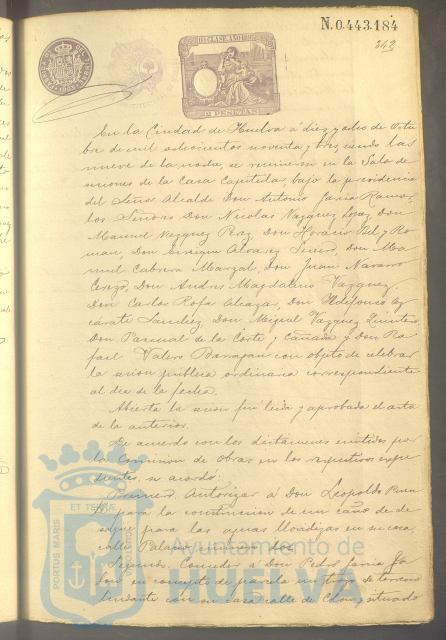 N.0.443.184
342
10ª CLASE. AÑO 1893
2 PESETAS
En la Ciudad de Huelva á diez y ocho de Octu
bre de mil ochocientos noventa y tres, siendo las
nueve de la noche, se reunieron en la Sala de
sesiones de la Casa Capitular, bajo la presidencia
del Señor Alcalde Don Antonio Garcia Ramos,
los Señores Don Nicolas Vazquez Lopez, Don
Manuel Vazquez Don Horacio Bel y Ro
man, Don Enrique Alvarez Don Ma
nuel Cabrera Marzal, Don Juan Navarro
Cerezo, Don Andres Magdaleno Vazquez,
Don Carlos Rofa Alcazar, Don Ildefonso Az
cárate Sanchez, Don Miguel Vazquez Quintero
Don Pascual de la Corte y Cañada y Don Ra
fael Valero Barragan con objeto de celebrar
la sesion publica ordinaria correspondiente
al dia de la fecha.
Abierta la sesion fué leida y aprobada el acta
de la anterior.
De acuerdo con los dictamenes emitidos por
la Comision de obras en los respectivos espe
dientes, se acordó:
Primero. Autorizar á Don Leopoldo
para la construccion de un caño de de
sagüe para las aguas llovedizas en su casa
calle Palacio, número dos.
Segundo. Conceder á Don Pedro Garcia
en concepto de parcela un trozo de terreno
lindante con su casa calle de situado
PORTUS MARIS
ET TERRE
CUSTODIA
Ayuntamiento de
HUELVA